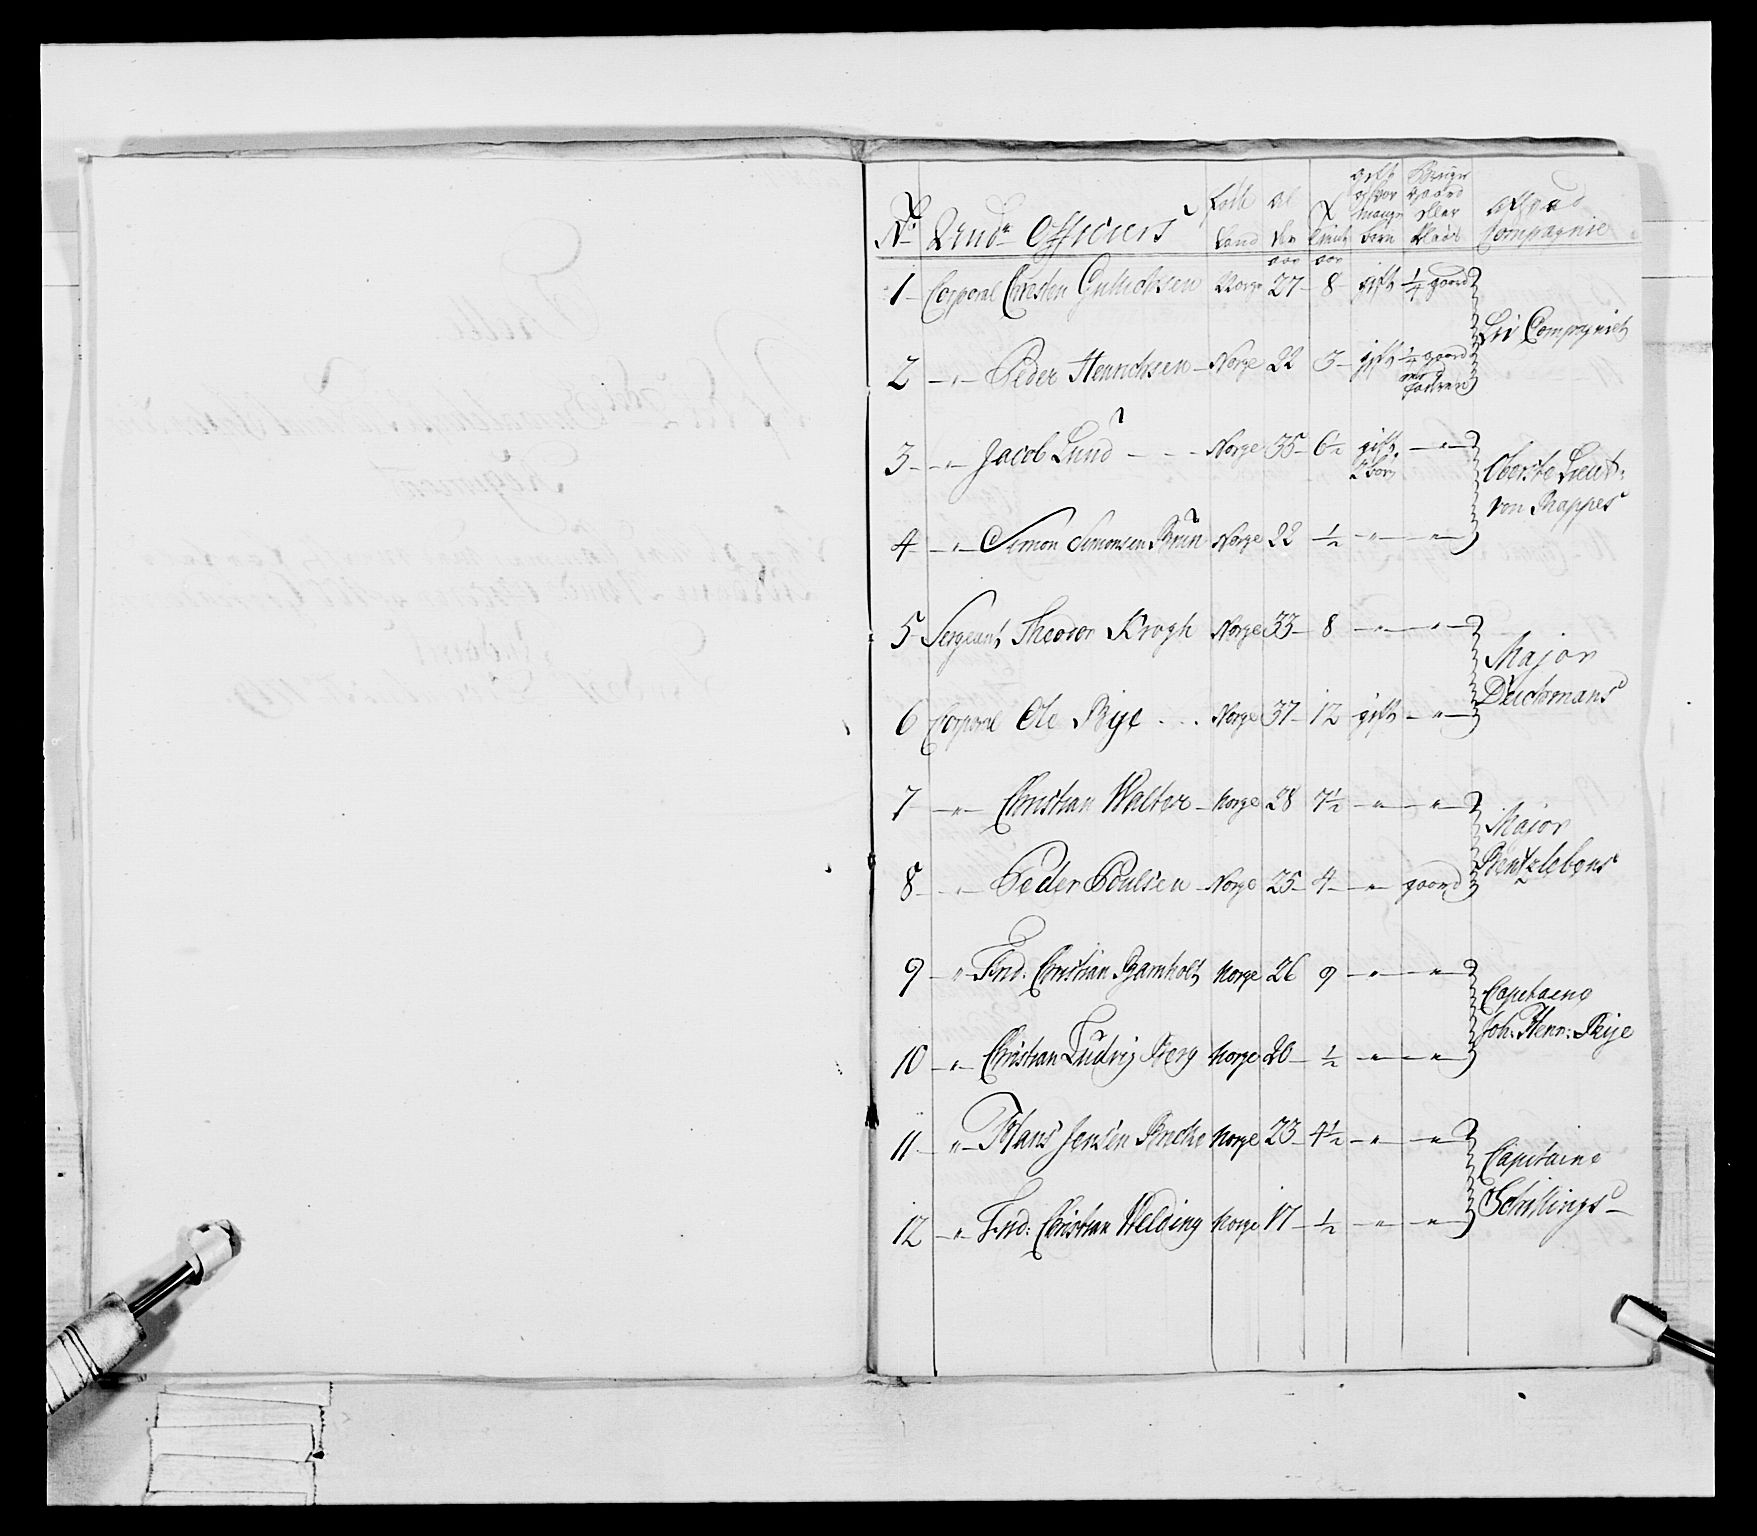 No Undr Officiers Föde Land Al der aar Tient aar gift og hvor mange börn Bruger gaard eller Plads af hvad Compagnie
1 Corporal Christen Gulichsen Norge 27 8 gift 1/4 gaard
Liv Compagniet
2 " Peder Henrichsen Norge 22 3 gift 1/4 gaard
3 " Jacob Lund Norge 35 6½ gift 2 börn "
Oberste Lieut: von Rappes
4 " Simon Simonsen Brun Norge 22 ½ " "
5 Sergeant Theodor Krogh Norge 33 8 " "
Major Deichmans
6 Corporal Ole Rye Norge 37 12 gift "
7 " Christian Walter Norge 28 7½ " "
Major Rentzlebens
8 " Peder Poulsen Norge 25 4 " gaard
9 " Frid. Christian Gamholt Norge 26 9 " "
Capitaine Joh: Henr: Rije
10 " Christian Ludvig Berg Norge 20 ½ " "
11 " Hans Jensen Norge 23 4½ " "
Capitaine Schillings
12 " Frid: Christian Welding Norge 17 ½ " "